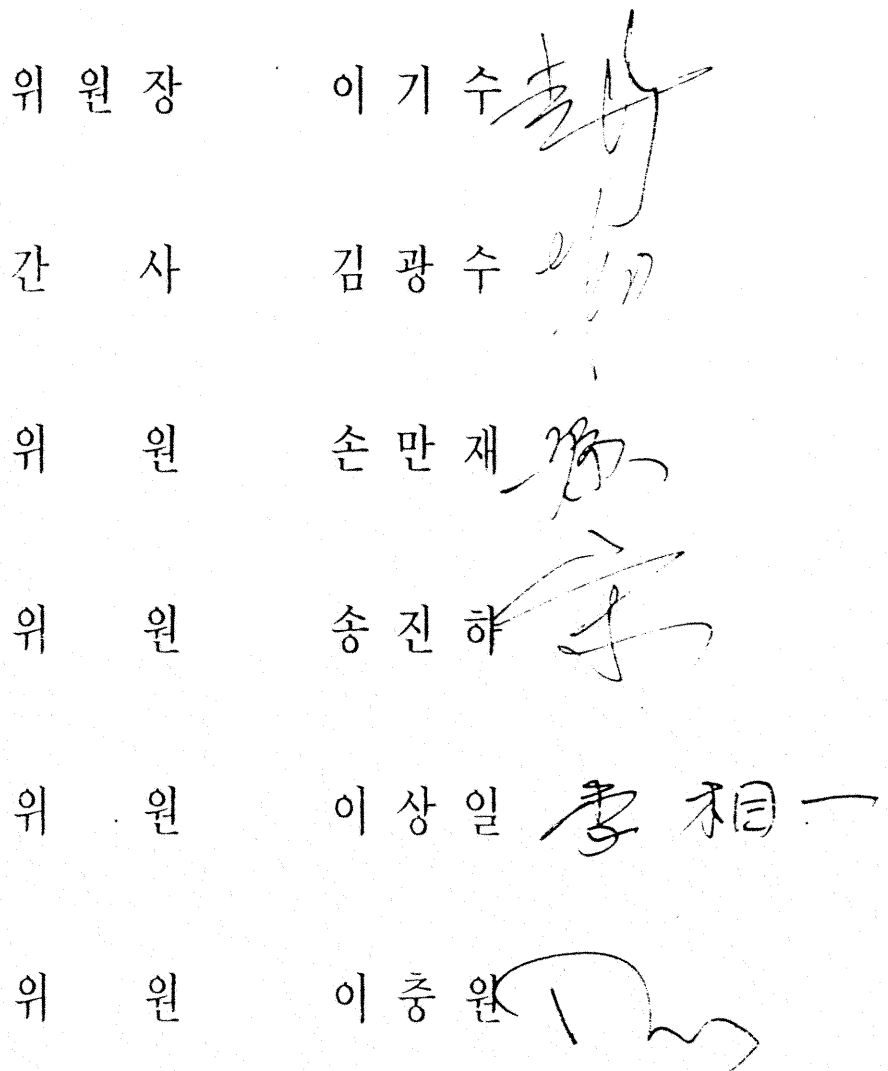 위 원 장 이 기 수
간 사 김 광 수
위 원 손 만 재
위 원 송 진 하
위 원 이 상 일 李 相 一
위 원 이 충 원